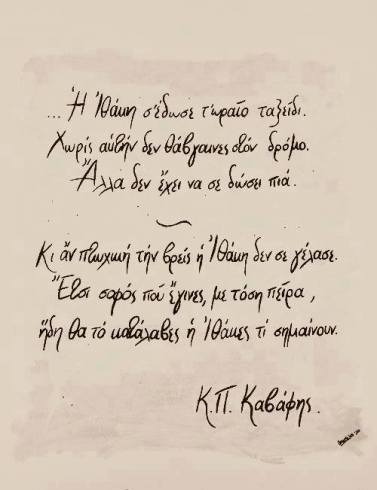 ...Ἡ Ἰθάκη σ' ἔδωσε τ' ὡραῖο ταξείδι.
Χωρίς αὐτήν δεν θἄβγαινες στόν δρόμο.
Ἄλλα δεν ἔχει να σε δώσει πιά.
Κι ἄν πτωχική τήν βρεῖς ἡ Ἰθάκη δεν σε γέλασε.
Ἔτσι σοφός πού ἔγινες, με τόση πεῖρα,
ἤδη θα τό κατάλαβες ἡ Ἰθάκες τί σημαίνουν.
Κ.Π. Καβάφης.